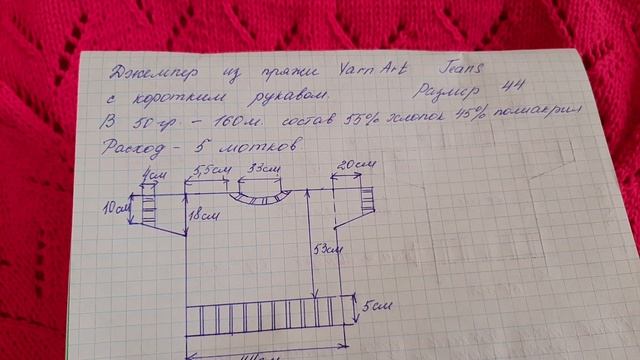 Джемпер из пряжи YarnArt Jeans
с коротким рукавом. Размер 44
В 50 гр. – 160 м. состав 55% хлопок 45% полиакрил
Расход – 5 мотков
4см 5,5см 33см 20см
10см 18см
53см
5см
44см